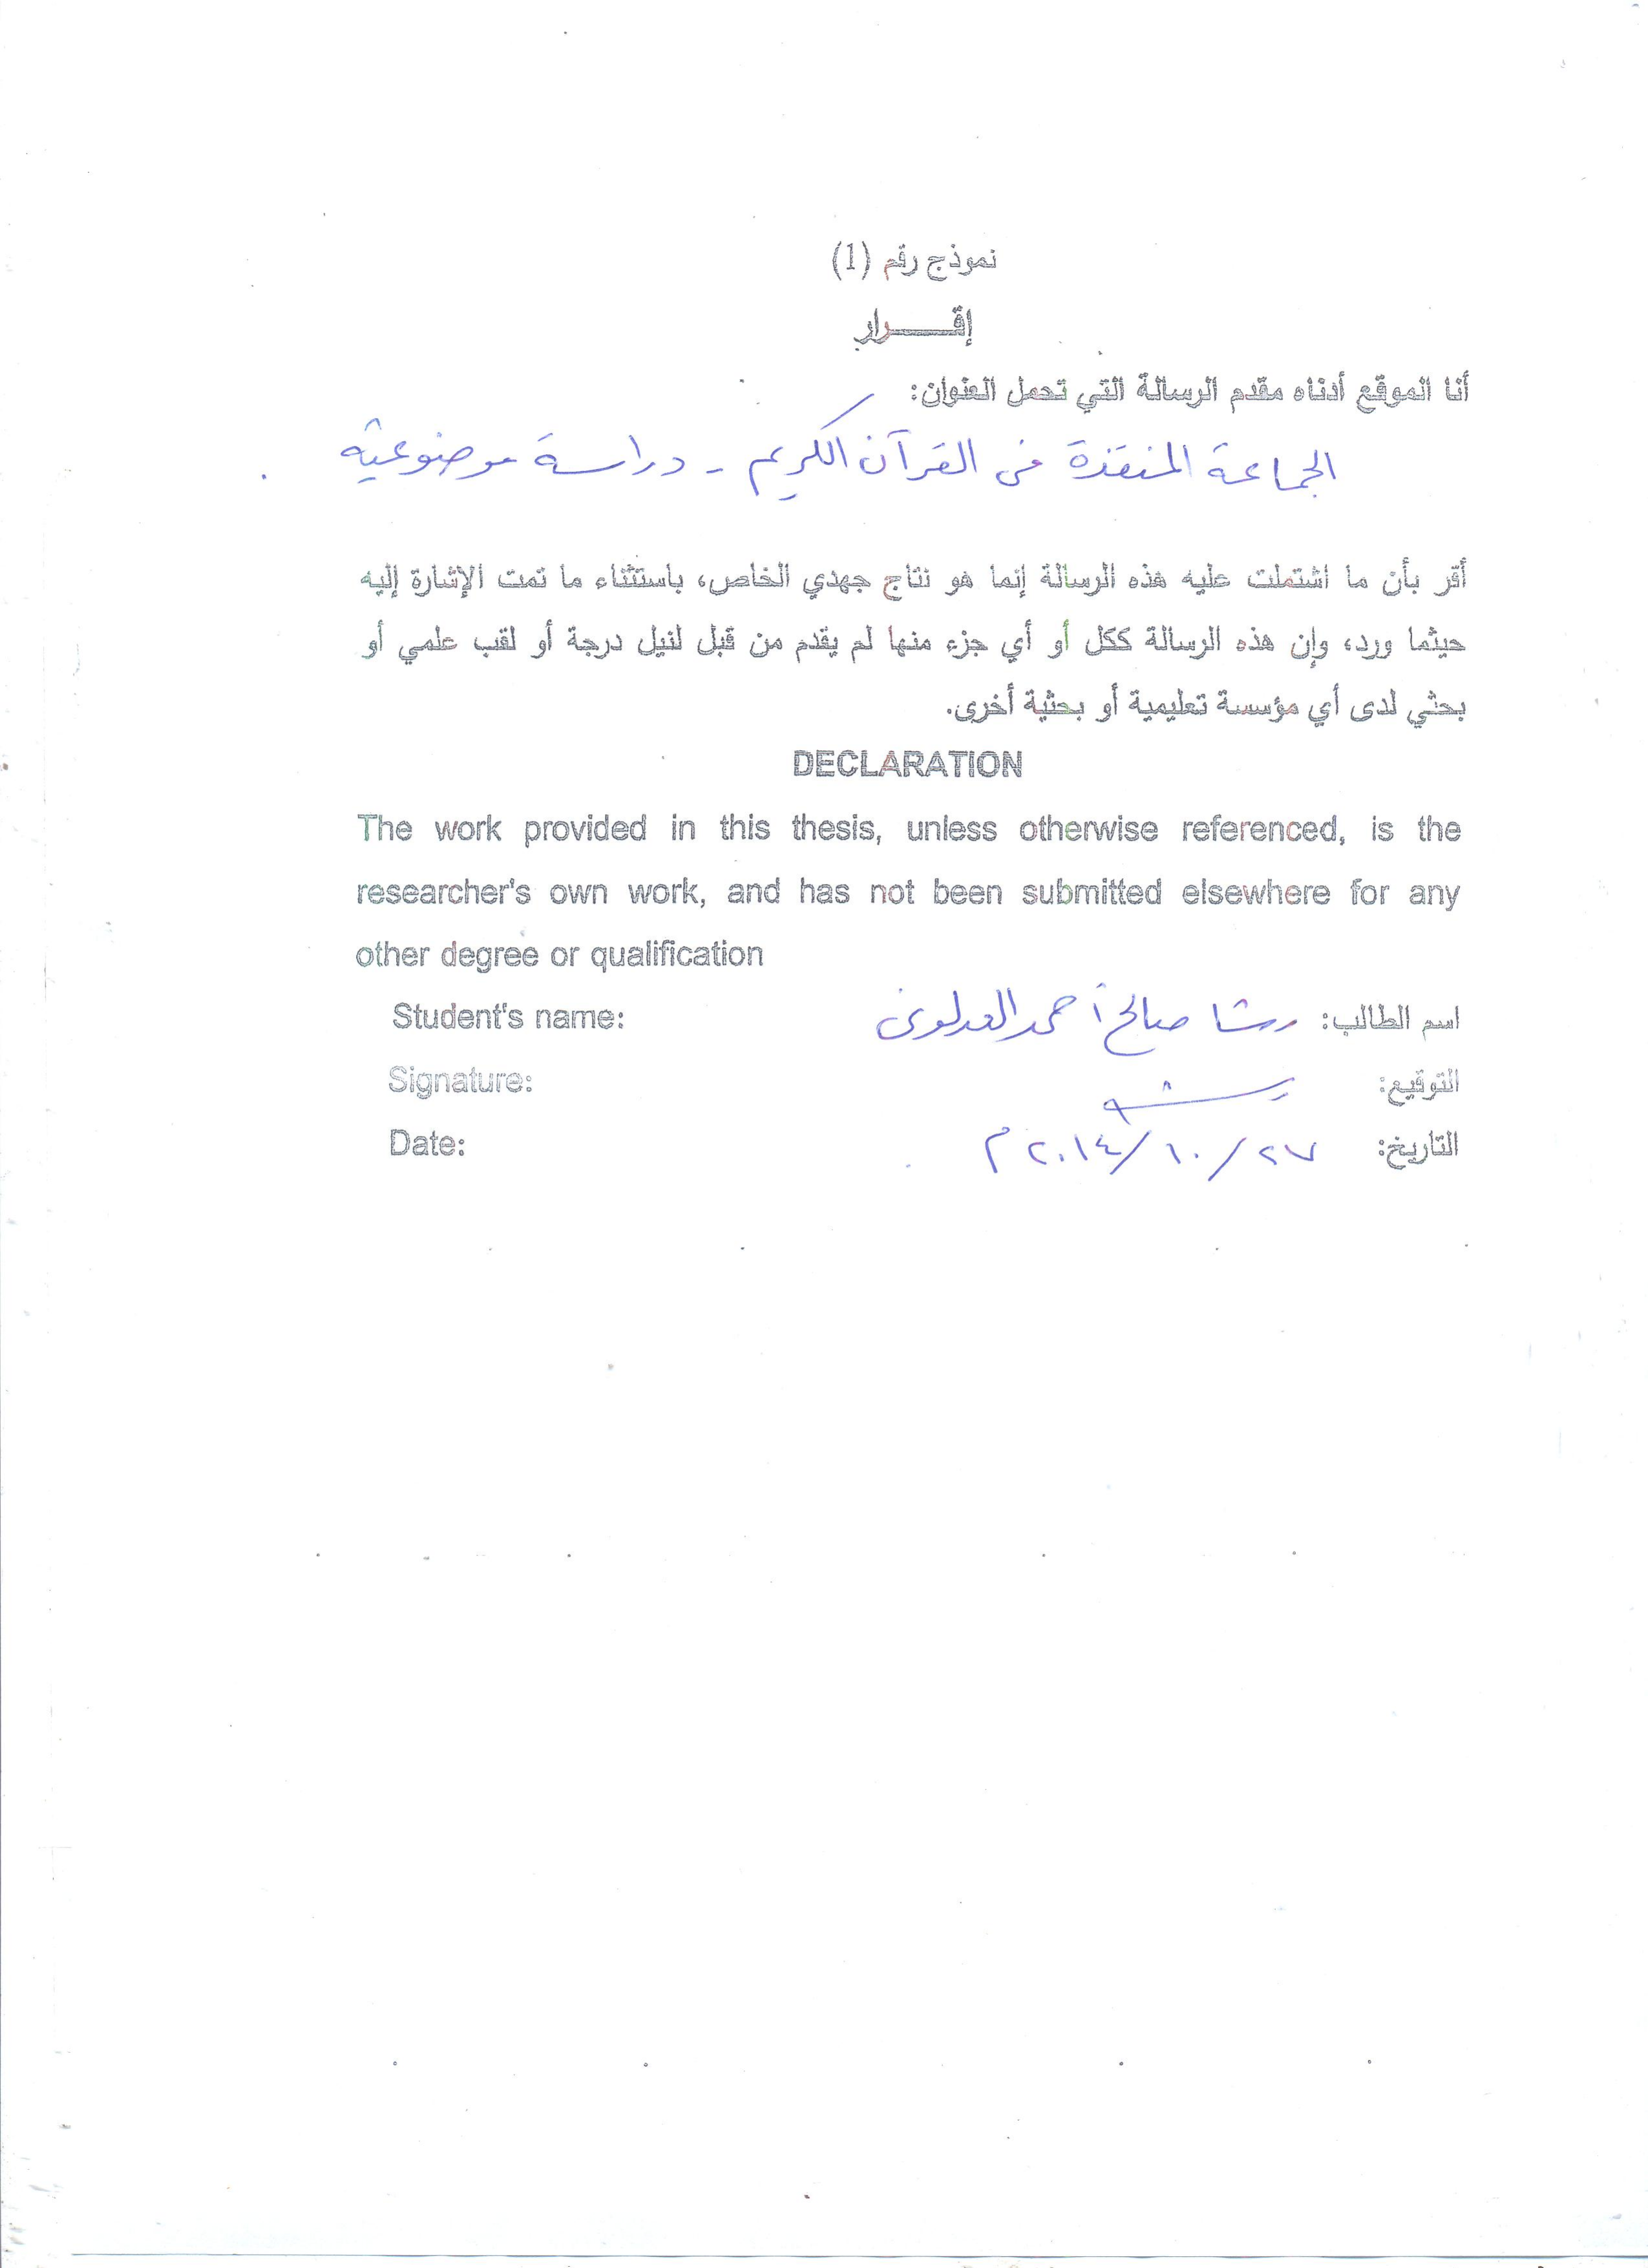 نموذج رقم (1)
إقـــــرار
أنا الموقع أدناه مقدم الرسالة التي تحمل العنوان:
الجماعة المنقذة في القرآن الكريم - دراسة موضوعية .
أقر بأن ما اشتملت عليه هذه الرسالة إنما هو نتاج جهدي الخاص، باستثناء ما تمت الإشارة إليه
حيثما ورد، وإن هذه الرسالة ككل أو أي جزء منها لم يقدم من قبل لنيل درجة أو لقب علمي أو
بحثي لدى أي مؤسسة تعليمية أو بحثية أخرى.
DECLARATION
The work provided in this thesis, unless otherwise referenced, is the
researcher's own work, and has not been submitted elsewhere for any
other degree or qualification
Student's name: اسم الطالب: رشا صالح أحمد العدلوني
Signature: التوقيع:
Date: التاريخ: ٢٧/١٠/٢٠١٤م